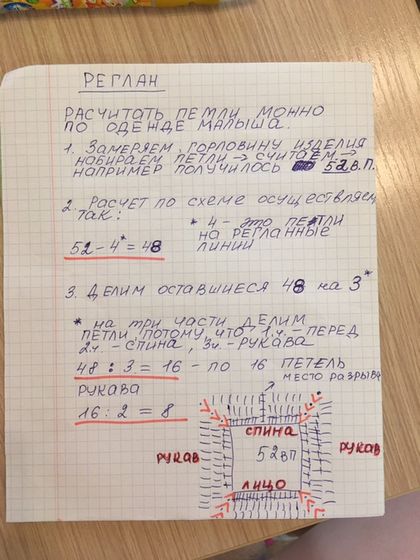 РЕГЛАН
РАСЧИТАТЬ ПЕТЛИ МОЖНО
ПО ОДЕЖДЕ МАЛЫША.
1. ЗАМЕРЯЕМ ГОРЛОВИНУ ИЗДЕЛИЯ
НАБИРАЕМ ПЕТЛИ → СЧИТАЕМ →
НАПРИМЕР ПОЛУЧИЛОСЬ 52 В.П.
2. РАСЧЕТ ПО СХЕМЕ ОСУЩЕСТВЛЯЕМ
ТАК:
* 4 - ЭТО ПЕТЛИ
НА РЕГЛАННЫЕ
ЛИНИИ
52 - 4* = 48
3. ДЕЛИМ ОСТАВШИЕСЯ 48 НА 3*
* НА ТРИ ЧАСТИ ДЕЛИМ
ПЕТЛИ ПОТОМУ, ЧТО 1 Ч. - ПЕРЕД
2 Ч. - СПИНА, 3 Ч. - РУКАВА
48 : 3 = 16 - ПО 16 ПЕТЕЛЬ
МЕСТО РАЗРЫВА
РУКАВА
16 : 2 = 8
СПИНА
РУКАВ 52 ВП РУКАВ
ЛИЦО